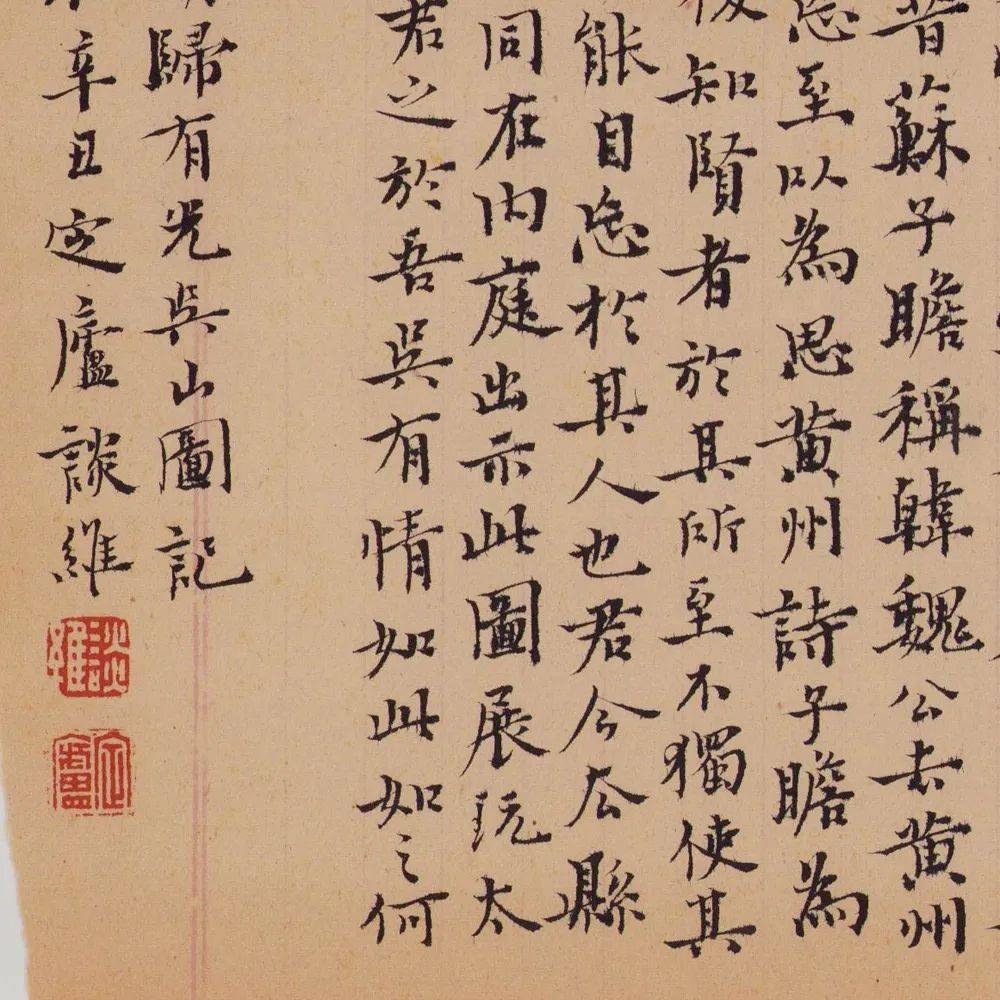 昔蘇子瞻稱韓魏公去黃州
忘至以為思黃州詩子瞻為
後知賢者於其所至不獨使其
能自忘於其人也君今去縣
同在內庭出示此圖展玩太
君之於吾吳有情如此如之何
歸有光吳山圖記
辛丑定廬談維
談維
定廬